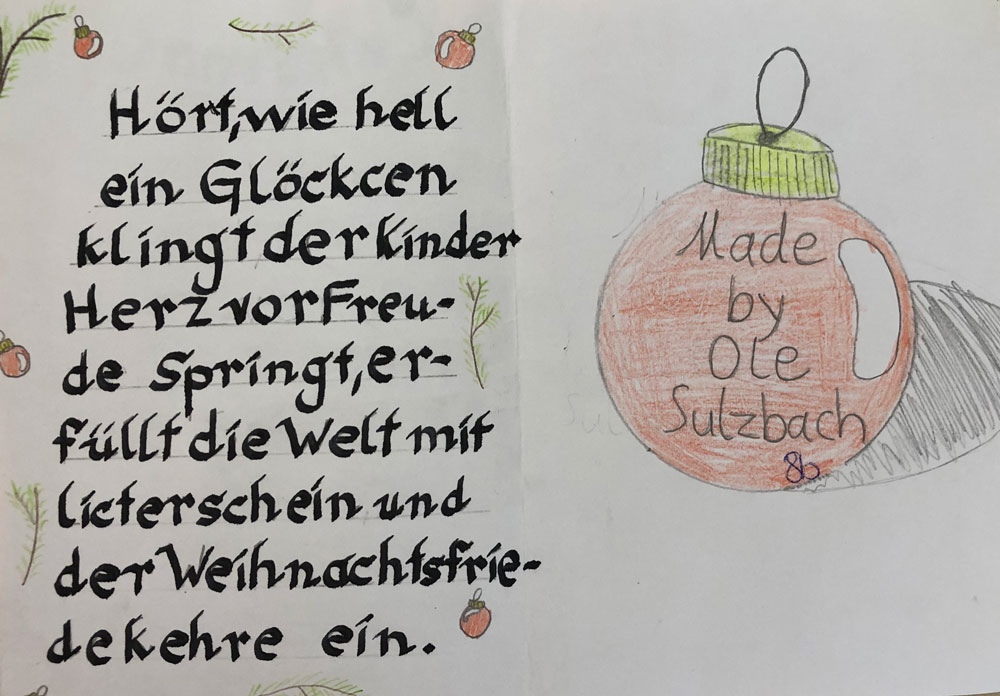 Hört, wie hell
ein Glöckcen
klingt der Kinder
Herz vor Freu-
de Springt, er-
füllt die Welt mit
licterschein und
der Weihnachtsfrie-
de kehre ein.
Made
by
Ole
Sulzbach
8b